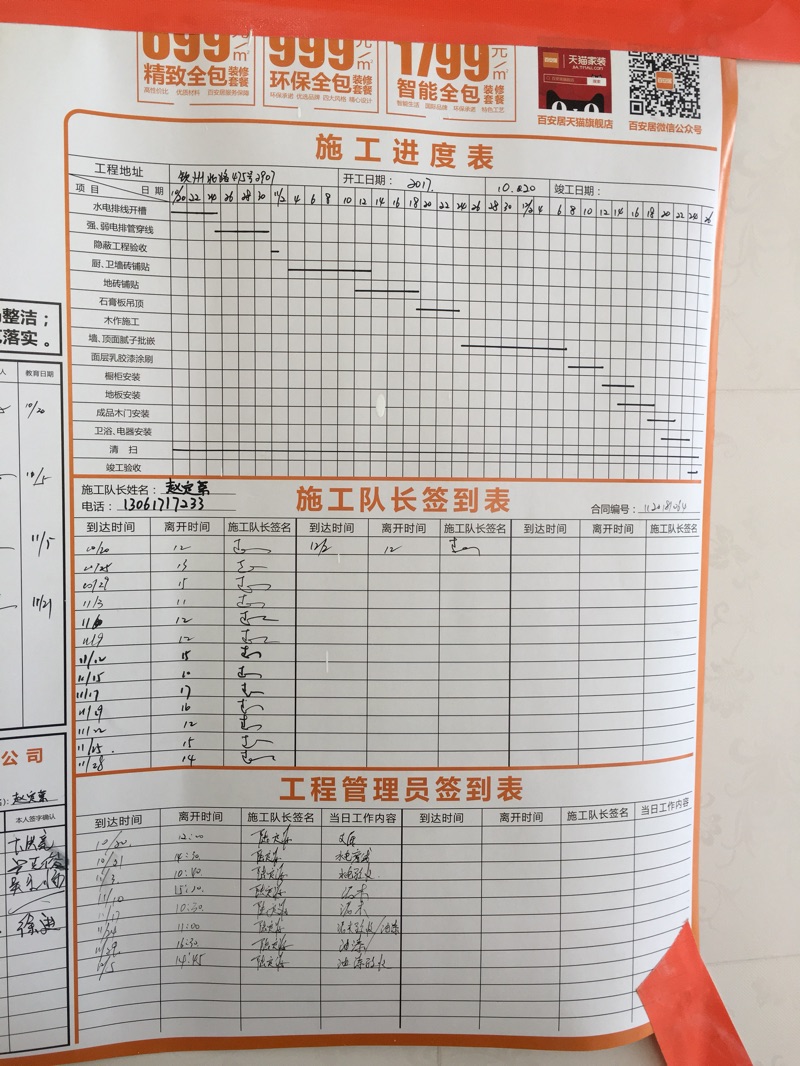 699元/m² 999元/m² 1799元/m²
精致全包 装修套餐 环保全包 装修套餐 智能全包 装修套餐
天猫家装
百安居天猫旗舰店 百安居微信公众号
施工进度表
工程地址 钦州北路475弄2907 开工日期： 2017. 10. 20 竣工日期：
项目 日期 10/20 22 24 26 28 30 11/2 4 6 8 10 12 14 16 18 20 22 24 26 28 30 12/2 4 6 8 10 12 14 16 18 20 22 24 26
水电排线开槽
强、弱电排管穿线
隐蔽工程验收
厨、卫墙砖铺贴
地砖铺贴
石膏板吊顶
木作施工
墙、顶面腻子批嵌
面层乳胶漆涂刷
橱柜安装
地板安装
成品木门安装
卫浴、电器安装
清 扫
竣工验收
整洁；
落实。
人 教育日期
10/20
11/5
11/21
施工队长签到表
施工队长姓名：
电话：13061717233
合同编号：
到达时间 离开时间 施工队长签名 到达时间 离开时间 施工队长签名 到达时间 离开时间 施工队长签名
10/20 12 12/2 12
10/25 13
10/29 15
11/3 11
11/6 12
11/9 12
11/12 15
11/15 10
11/17 17
11/19 16
11/22 12
11/25. 15
11/28 14
公司
本人签字确认
工程管理员签到表
到达时间 离开时间 施工队长签名 当日工作内容 到达时间 离开时间 施工队长签名 当日工作内容
10/20 12:00 交底
10/21 14:30
11/3 10:40 水电验收
11/10 15:10 泥木
11/17 10:30 泥木
11/24 11:00 泥木验收/油漆
11/29 16:30 油漆
12/5 14:45 油漆验收